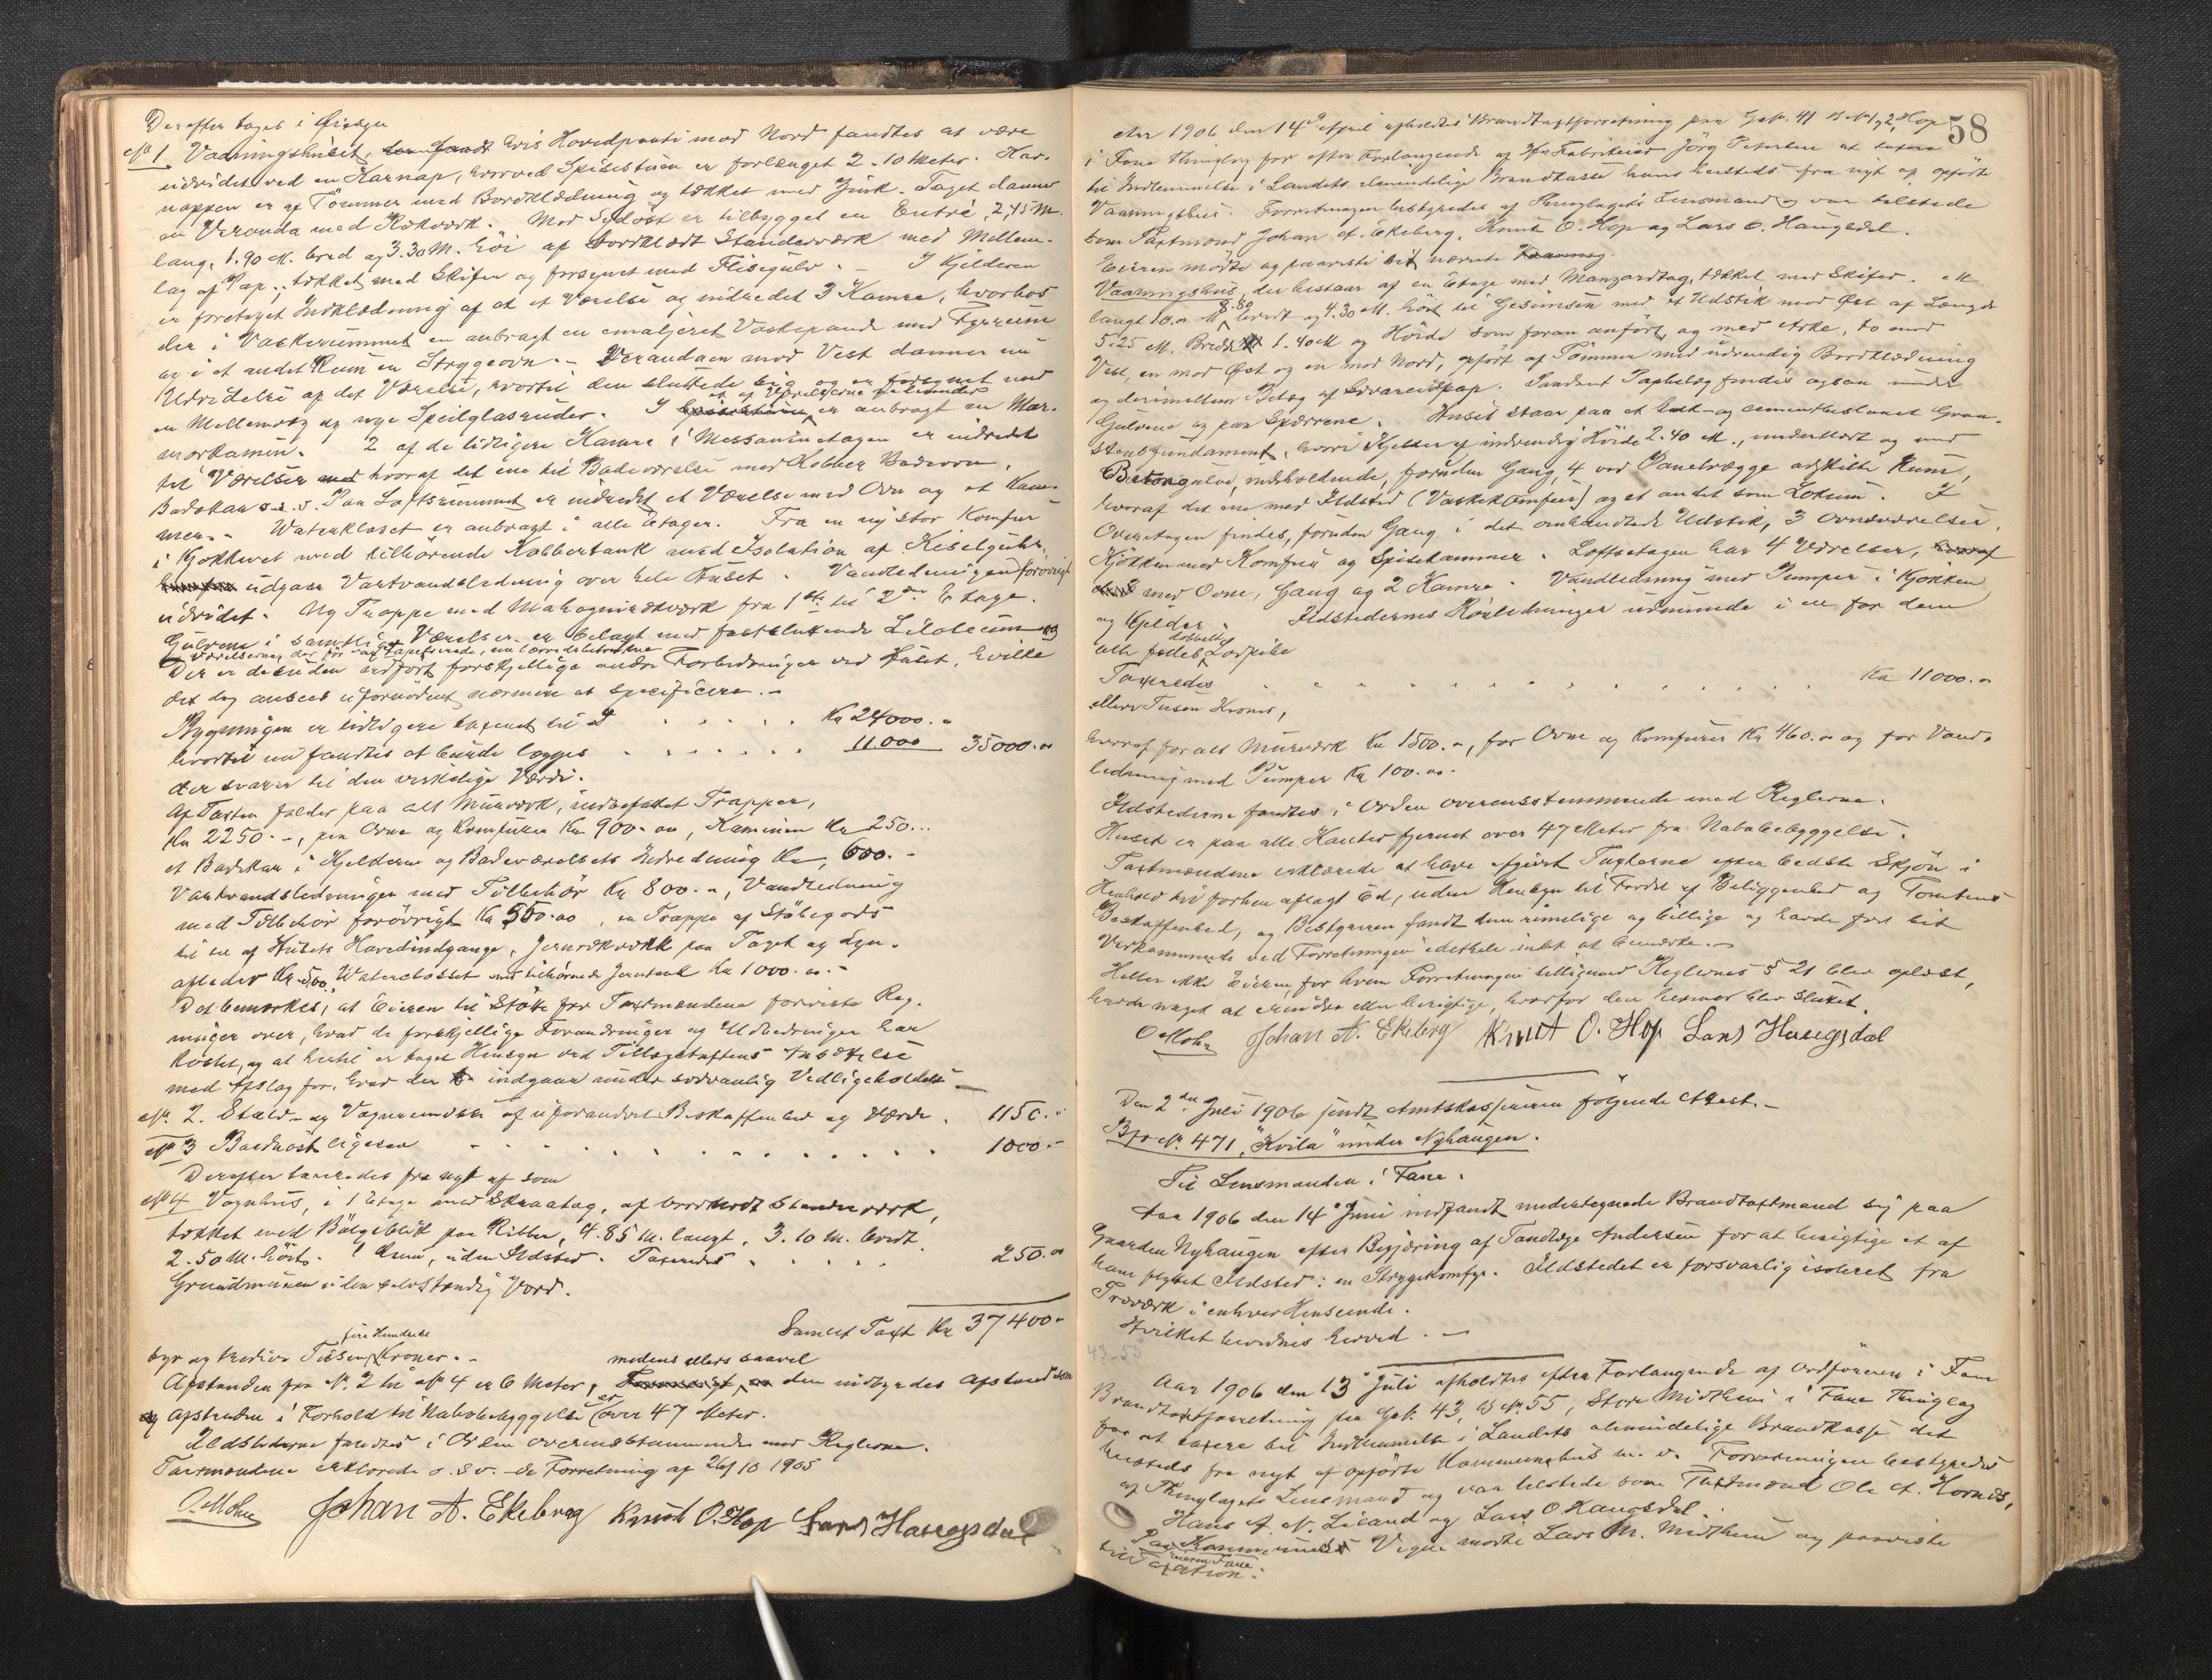 Derefter toges i Øiesyn
No 1. Vaaningshuset, hvis Hovedparti mod Nord fandtes at være
udvidet ved en Karnap, hvorved Spisestuen er forlænget 2.10 Meter. Kar-
nappen er af Tömmer med Bordklædning og tækket med Zink. Taget danner
en Veranda med Rækværk. Mod Sydost er tilbygget en Entré, 2,45 M.
lang, 1.90 M. bred og 3.30 M. höi af bordklædt Standerværk med Mellem-
lag af Pap, tækket med Skifer og forsynet med Flisegulv. – I Kjelderen
er foretaget Indklædning af et Værelse og indredet 3 Kamre, hvorhos
der i Vaskerummet er anbragt en emaljeret Vaskepande med Fyrrum
og i et andet Rum en Strygeovn. – Verandaen mod Vest danner nu
Udvidelse af det Værelse, hvortil den sluttede sig og er forsynet med
en Mellemvæg og nye Speilglasruder. I et af Værelserne er anbragt en Mar-
morkamin. 2 af de tidligere Kamre i Messaninetagen er indredet
til Værelser hvoraf det ene til Badeværelse med Kobber Badeovn,
Badekar o.s.v. Paa Loftsrummet er indredet et Værelse med Ovn og et Kam-
mer. – Waterkloset er anbragt i alle Etager. Fra en ny stor Komfur
i Kjökkenet med tilhörende Kobbertank med Isolation af Kiselguhr,
udgaar Varmtvandsledning over hele Huset. Vandledningen forövrigt
udvidet. Ny Trappe med Mahognirækværk fra 1ste til 2den Etage.
Gulvene i samtlige Værelser er belagt med fastslukende Linoleum og
Der er desuden udfört forskjellige andre Forbedringer ved Huset, hvilke
det dog ansees ufornödent nærmere at specificere. –
Bygningen er tidligere taxeret til . . . . . Kr 24000.–
hvortil nu fandtes at burde lægges . . . . . . 11000 35000.00
der svarer til den virkelige Værdi.
Af Taxten falder paa alt Murværk, indbefattet Trapper,
Kr 2250.–, paa Ovne og Komfurer Kr 900.00, Kaminen Kr 250...
et Badekar i Kjelderen og Badeværelsets Indredning Kr 600.–
Varmtvandsledningen med Tilbehör Kr 800.–, Vandledning
med Tilbehör forövrigt Kr 550.00, en Trappe af Stöbegods
til en af Husets Hovedindgange, Jernrækværk paa Taget og Lyn-
afleder Kr 500, Waterclosset med tilhörende Jerntank Kr 1000.00.–
Det bemærkes, at Eieren til Stötte for Taxtmændene foreviste Reg-
ninger over, hvad de forskjellige Forandringer og Udbedringer har
kostet, og at hertil er taget Hensyn ved Tillægstaxtens Ansættelse
med Afslag for, hvad der indgaar under sædvanlig Vedligeholdelse. –
No. 2. Stald- og Vognremise af uforandret Beskaffenhed og Værdi . 1150.–
No 3 Baadnöst ligesaa . . . . . . . . . . . . 1000.–
Derefter taxeredes fra nyt af som
No 4 Vognhus, i 1 Etage med Skraatag, af bordklædt Standerværk,
tækket med Bölgeblik paa Ribber, 4.85 M. langt, 3.10 M. bredt
2.50 M. höit. 1 Rum, uden Ildsted. Taxeredes . . . . . 250.00
Grundmuren uden selvstændig Værd.
Samlet Taxt Kr 37400.–
fire Hundrede
syv og tredive Tusen Kroner. –
medens ellers saavel
Afstanden fra No. 2 til No 4 er 6 Meter, den indbyrdes Afstand som
Afstanden i Forhold til Nabobebyggelse er over 47 Meter.
Ildstederne fandtes i Orden overensstemmende med Reglerne.
Taxtmændene erklærede o.s.v. – Forretning af 26/10 1905
O Mohn Johan A. Ekeberg Knut O. Hop Lars Haugsdal
58
Aar 1906 den 14de April afholdtes Brandtaxtforretning paa Gr. No. 41 B. No 1 & 2, Hop
i Fane Thinglag for efter Forlangende af Hr Fabrikeier Jörg Petersen at taxere
til Indlemmelse i Landets almindelige Brandkasse hans hersteds fra nyt af opförte
Vaaningshus. Forretningen bestyredes af Thinglagets Lensmand og var tilstede
som Taxtmænd Johan A. Ekeberg, Knut O. Hop og Lars O. Haugsdal.
Eieren mödte og paaviste det nævnte
Vaaningshus, der bestaar af en Etage med Manzardtag, tækket med Skifer,
langt 10.00 M 8.80 bredt og 4.30 M. höit til Gesimsen med et Udstik mod Øst af Længde
5.25 M. Bredde 1.40 M og Höide som foran anfört, og med Arke, to mod
Vest, en mod Øst og en mod Nord, opfört af Tömmer med udvendig Bordklædning
og derimellem Belæg af Pap. Saadant Papbelæg findes ogsaa under
Gulvene og paa Sperrene. Huset staar paa et kalk- og cementbestanet Graa-
stensfundament, hvori Kjelder af indvendig Höide 2.40 M., undermuret og med
Betongulve, indeholdende, foruden Gang, 4 ved Panelvægge adskilte Rum,
hvoraf det ene med Ildsted (Vaskekomfur) og et andet som Lokum. I
Overetagen findes, foruden Gang i det omhandlede Udstik, 3 Ovnsværelser,
Kjökken med Komfur og Spisekammer. Loftsetagen har 4 Værelser,
med Ovne, Gang og 2 Kamre. Vandledning med Pumper i Kjökken
og Kjelder. Ildstedernes Rörledninger udmunde i en for dem
alle fælles dobbelt Lodpibe
Taxeredes . . . . . . . . . . . . . Kr 11000.00
elleve Tusen Kroner,
hvoraf for alt Murværk Kr 1500.–, for Ovne og Komfurer Kr 460.00 og for Vand-
ledning med Pumper Kr 100.00.
Ildstederne fandtes i Orden overensstemmende med Reglerne.
Huset er paa alle Kanter fjernet over 47 Meter fra Nabobebyggelse.
Taxtmændene erklærede at have afgivet Taxterne efter bedste Skjön i
Henhold til forhen aflagt Ed, uden Hensyn til Fordel af Beliggenhed og Tomtens
Beskaffenhed, og Bestyreren fandt dem rimelige og billige og havde for sit
Vedkommende ved Forretningen idethele intet at bemærke. –
Heller ikke Eieren, for hvem Forretningen tilligemed Reglernes § 21 blev oplæst,
havde noget at erindre eller berigtige, hvorfor den hermed blev sluttet.
O Mohn Johan A. Ekeberg Knut O. Hop Lars Haugsdal
Den 2den Juli 1906 sendt Amtskassereren fölgende Attest. –
Br No. 471, "Kvila" under Nyhaugen.
Til Lensmanden i Fane.
Aar 1906 den 14de Juni indfandt undertegnede Brandtaxtmænd sig paa
Gaarden Nyhaugen efter Begjæring af Tandlæge Andersen for at besigtige et af
ham flyttet Ildsted: en Strygekomfyr. Ildstedet er forsvarlig isoleret fra
Træværk i enhver Henseende.
Hvilket bevidnes herved. –
43-55
Aar 1906 den 13de Juli afholdtes efter Forlangende af Ordföreren i Fane
Brandtaxtforretning paa Gr. No. 43, B No. 55, Store Midtheim i Fane Thinglag
for at taxere til Indlemmelse i Landets almindelige Brandkasse det
hersteds fra nyt af opförte Kommunehus m. v. Forretningen bestyredes
af Thinglagets Lensmand og var tilstede som Taxtmænd Ole A. Hornes,
Hans A. N. Liland og Lars O Haugsdal.
Paa Kommunens Vegne mödte Lars M. Midtheim og paaviste
til Taxation: